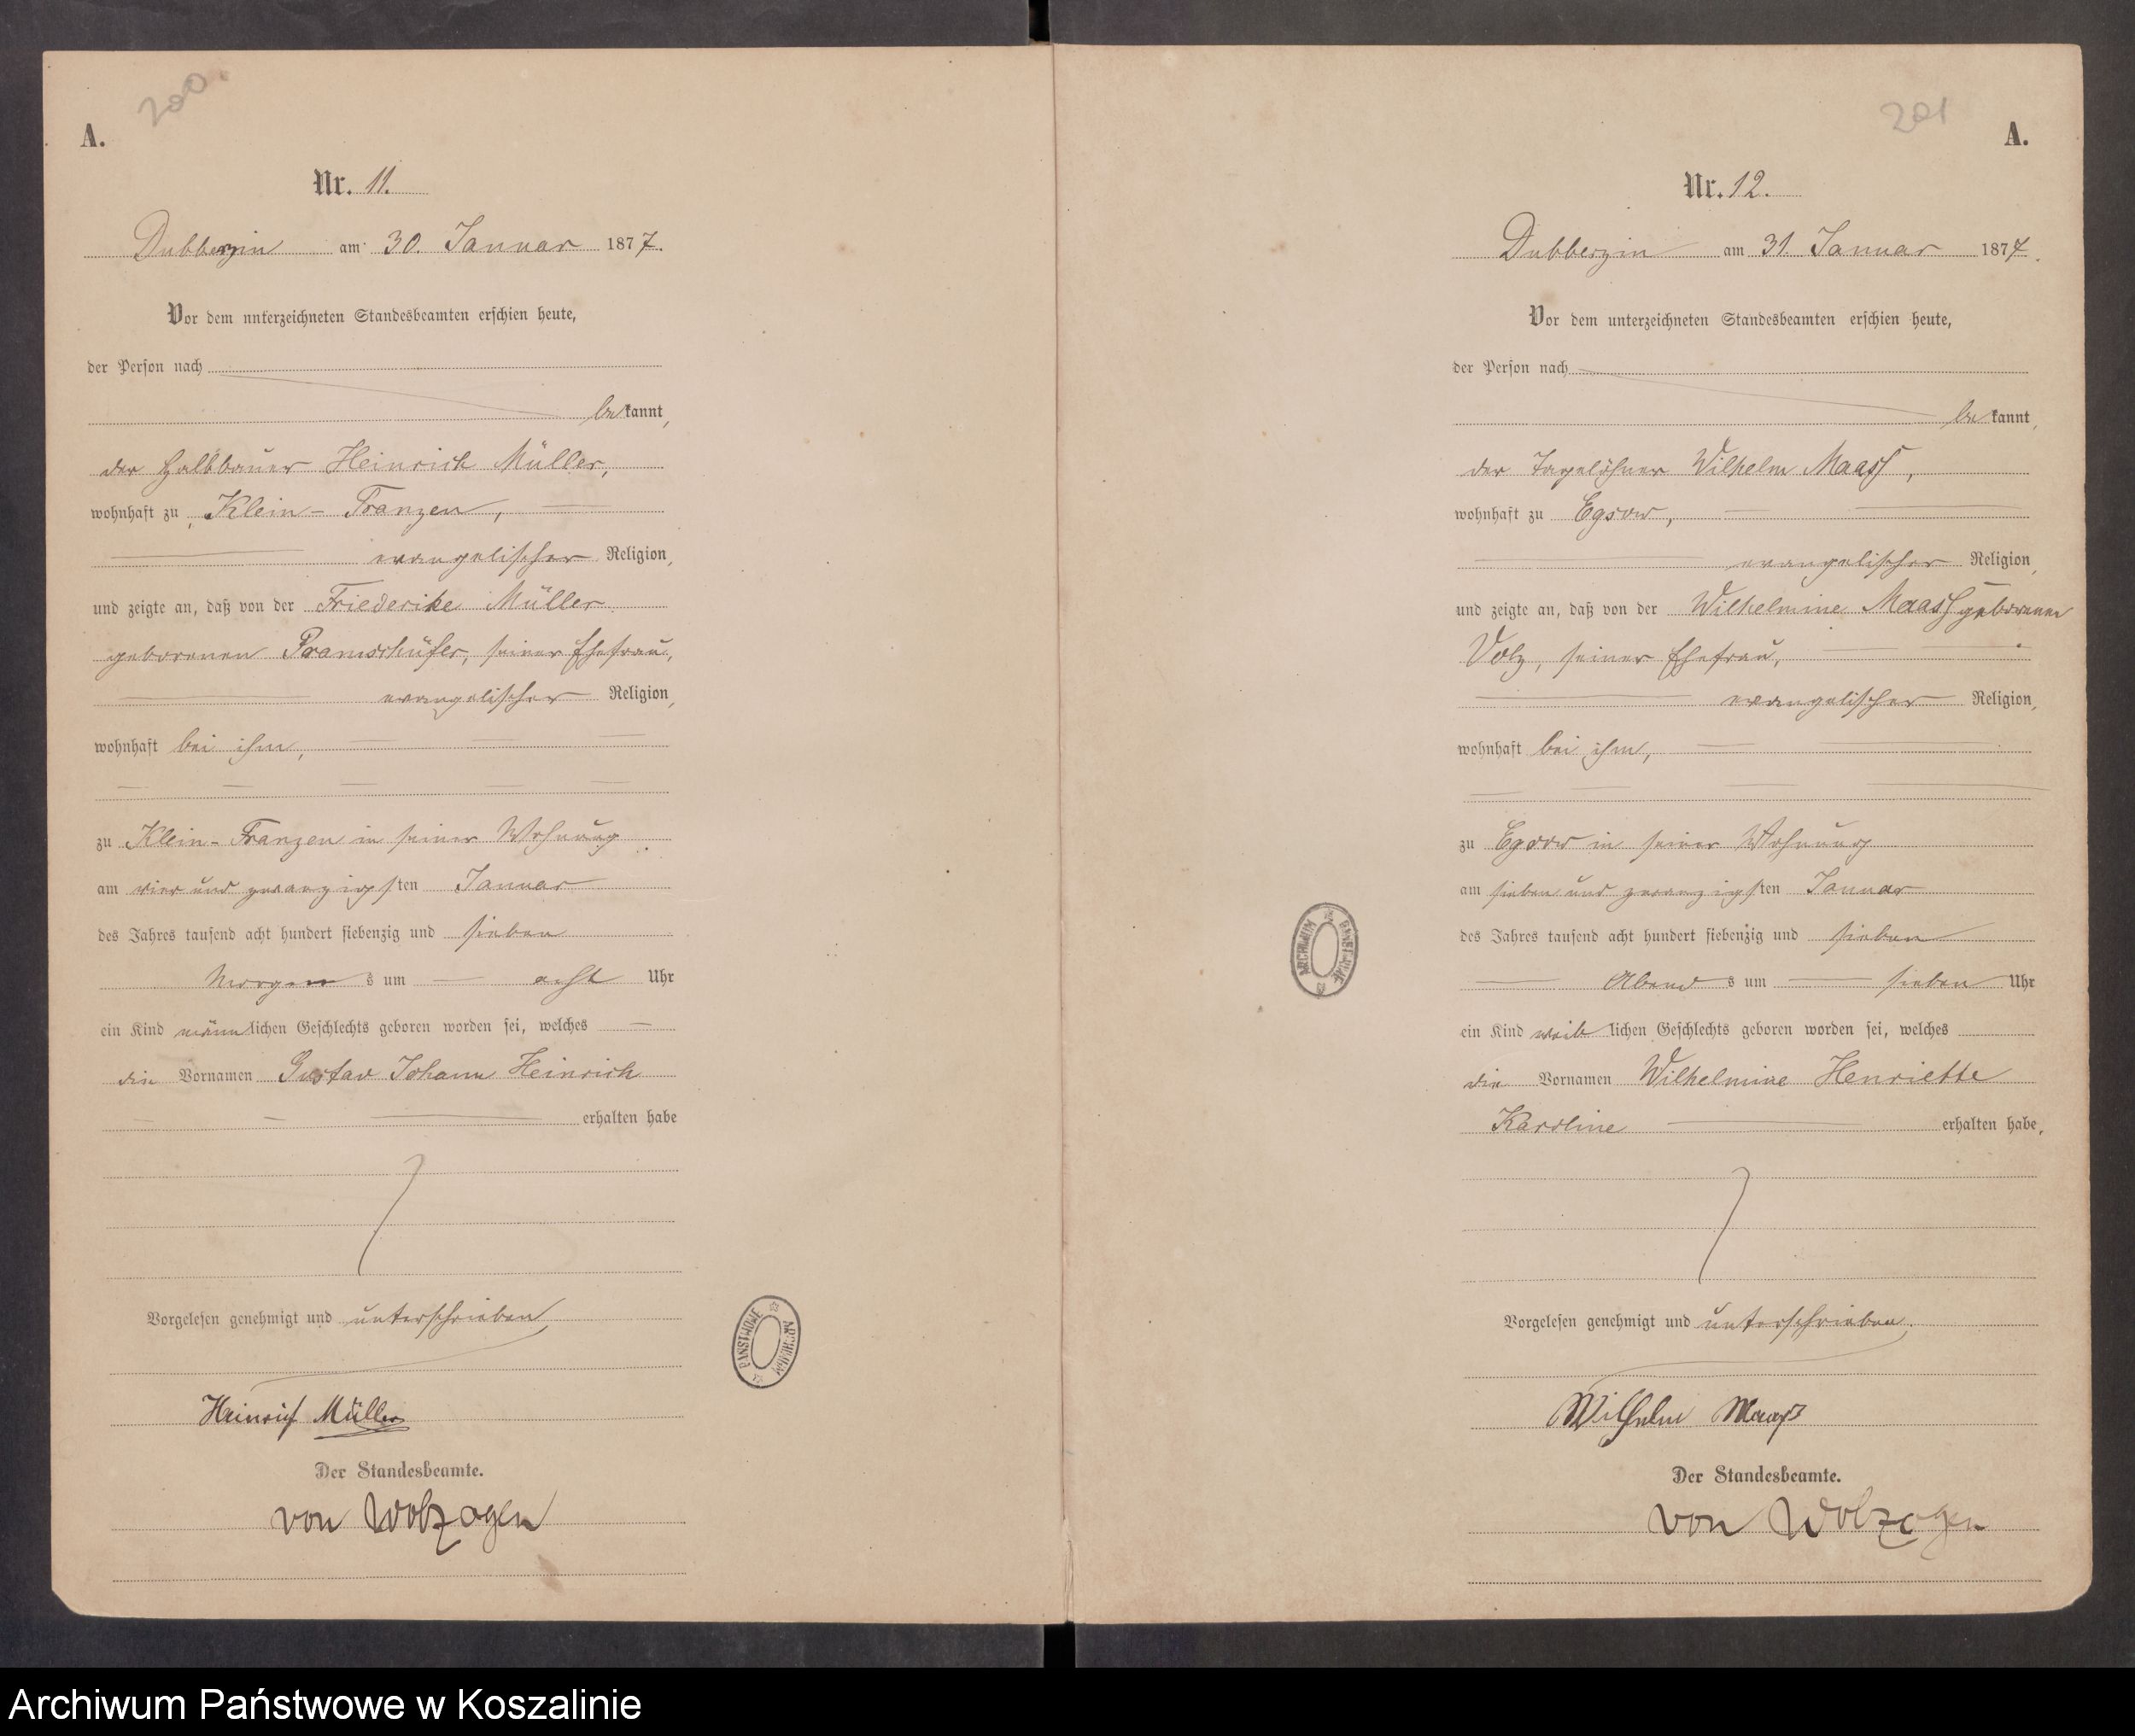 200.
A.
Nr. 11.
Dubberzin am 30. Januar 1877.
Vor dem unterzeichneten Standesbeamten erschien heute,
der Person nach
bekannt,
der Halbbauer Heinrich Müller,
wohnhaft zu Klein-Franzen,
evangelischer Religion,
und zeigte an, daß von der Friederike Müller
geborenen Pramschüfer, seiner Ehefrau,
evangelischer Religion,
wohnhaft bei ihm,
zu Klein-Franzen in seiner Wohnung
am vier und zwanzigsten Januar
des Jahres tausend acht hundert siebenzig und sieben
Morgens um acht Uhr
ein Kind männlichen Geschlechts geboren worden sei, welches
die Vornamen Gustav Johann Heinrich
erhalten habe
Vorgelesen genehmigt und unterschrieben
Heinrich Müller
Der Standesbeamte.
von Wolzogen
PAŃSTWOWE ARCHIWUM
201
A.
Nr. 12.
Dubberzin am 31. Januar 1877.
Vor dem unterzeichneten Standesbeamten erschien heute,
der Person nach
bekannt,
der Tagelöhner Wilhelm Maass,
wohnhaft zu Egsow,
evangelischer Religion,
und zeigte an, daß von der Wilhelmine Maass geborenen
Volz, seiner Ehefrau,
evangelischer Religion,
wohnhaft bei ihm,
zu Egsow in seiner Wohnung
am sieben und zwanzigsten Januar
des Jahres tausend acht hundert siebenzig und sieben
Abends um sieben Uhr
ein Kind weiblichen Geschlechts geboren worden sei, welches
die Vornamen Wilhelmine Henriette
Karoline erhalten habe,
Vorgelesen genehmigt und unterschrieben.
Wilhelm Maaß
Der Standesbeamte.
von Wolzogen
ARCHIWUM PAŃSTWOWE
Archiwum Państwowe w Koszalinie